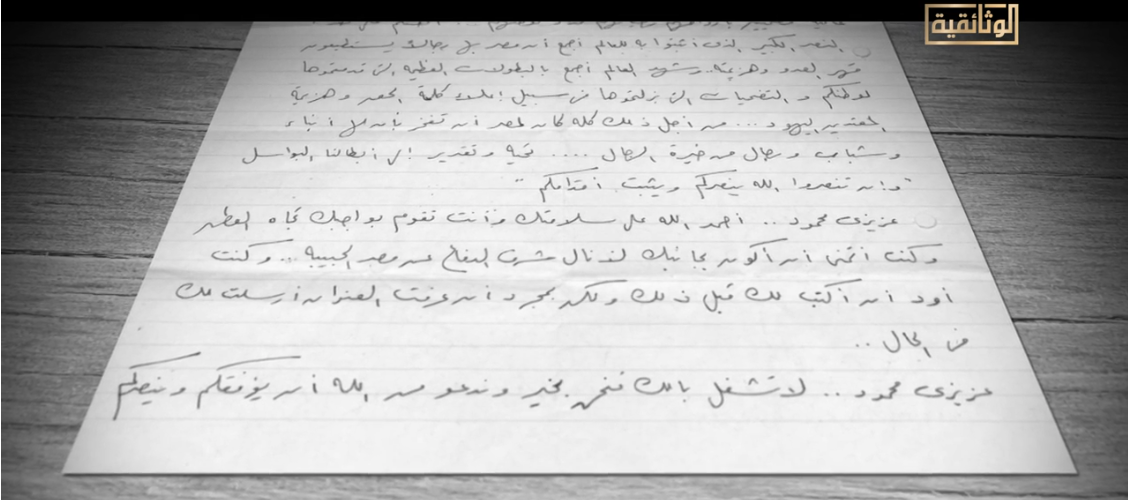 الوثائقية
النصر الكبير الذى أثبتوا به للعالم أجمع أن مصر بها رجالاً يستطيعون
قهر العدو وهزيمته.. وشهد العالم أجمع بالبطولات العظيمة التى قدمتموها
لوطنكم و التضحيات التى بذلتموها من سبيل إعلاء كلمة الحق وهزيمة
المعتدين اليهود ... من أجل ذلك كله كان لمصر أن تفخر بأن لها أبناء
وشباب ورجال من خيرة الرجال .... تحية وتقدير إلى أبطالنا البواسل
"وان تنصروا الله ينصركم ويثبت أقدامكم"
عزيزى محمود .. أحمد الله على سلامتك وأنت تقوم بواجبك تجاه الوطن
وكنت أتمنى أن أكون بجانبك لننال شرف الدفاع عن مصر الحبيبة .. وكنت
أود أن أكتب لك قبل ذلك ولكن بمجرد أن عرفت العنوان أرسلت لك
فى الحال ..
عزيزى محمود .. لا تشغل بالك فنحن بخير وندعو من الله أن يوفقكم وينصركم